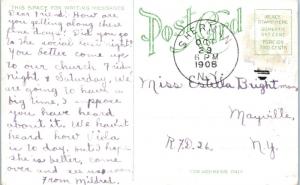 THIS SPACE FOR WRITING MESSAGES
Dear Friend. How are
you getting along these
fine days? Did you go
to the social last night?
You better come up
to our church Friday
night & Saturday, We
are going to have a
big time, I suppose
you have heard
about it. We haven't
heard how Viola
is to day, but I hope
she is better, come
over and see us soon
From Mildred.
Post Card
SHERMAN
OCT
N.Y.
6 PM
1908
PLACE
STAMP HERE
DOMESTIC
ONE CENT
FOREIGN
TWO CENTS
Miss Estella Brightman
Mayville,
R.F.D. 26.
N.Y.
FOR ADDRESS ONLY